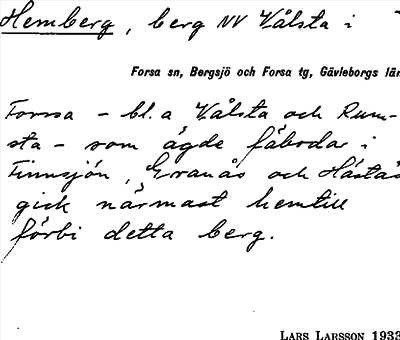 Hemberg, berg NV Vålsta i
Forsa sn, Bergsjö och Forsa tg, Gävleborgs län
Forssa - bl.a Vålsta och Rum-
sta - som ägde fäbodar i
Finnsjön, Granås och Håstaå
gick närmast hemtill
förbi detta berg.
LARS LARSSON 1933